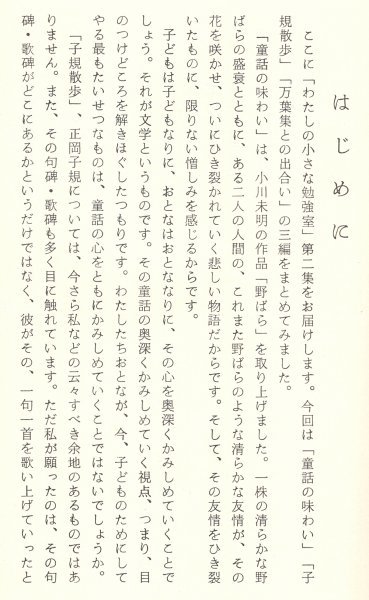 はじめに
ここに「わたしの小さな勉強室」第二集をお届けします。今回は「童話の味わい」「子
規散歩」「万葉集との出合い」の三編をまとめてみました。
「童話の味わい」は、小川未明の作品「野ばら」を取り上げました。一株の清らかな野
ばらの盛衰とともに、ある二人の人間の、これまた野ばらのような清らかな友情が、その
花を咲かせ、ついにひき裂かれていく悲しい物語だからです。そして、その友情をひき裂
いたものに、限りない憎しみを感じるからです。
子どもは子どもなりに、おとなはおとななりに、その心を奥深くかみしめていくことで
しょう。それが文学というものです。その童話の奥深くかみしめていく視点、つまり、目
のつけどころを解きほぐしたつもりです。わたしたちおとなが、今、子どものためにして
やる最もたいせつなものは、童話の心をともにかみしめていくことではないでしょうか。
「子規散歩」、正岡子規については、今さら私などの云々すべき余地のあるものではあ
りません。また、その句碑・歌碑も多く目に触れています。ただ私が願ったのは、その句
碑・歌碑がどこにあるかというだけではなく、彼がその、一句一首を歌い上げていったと